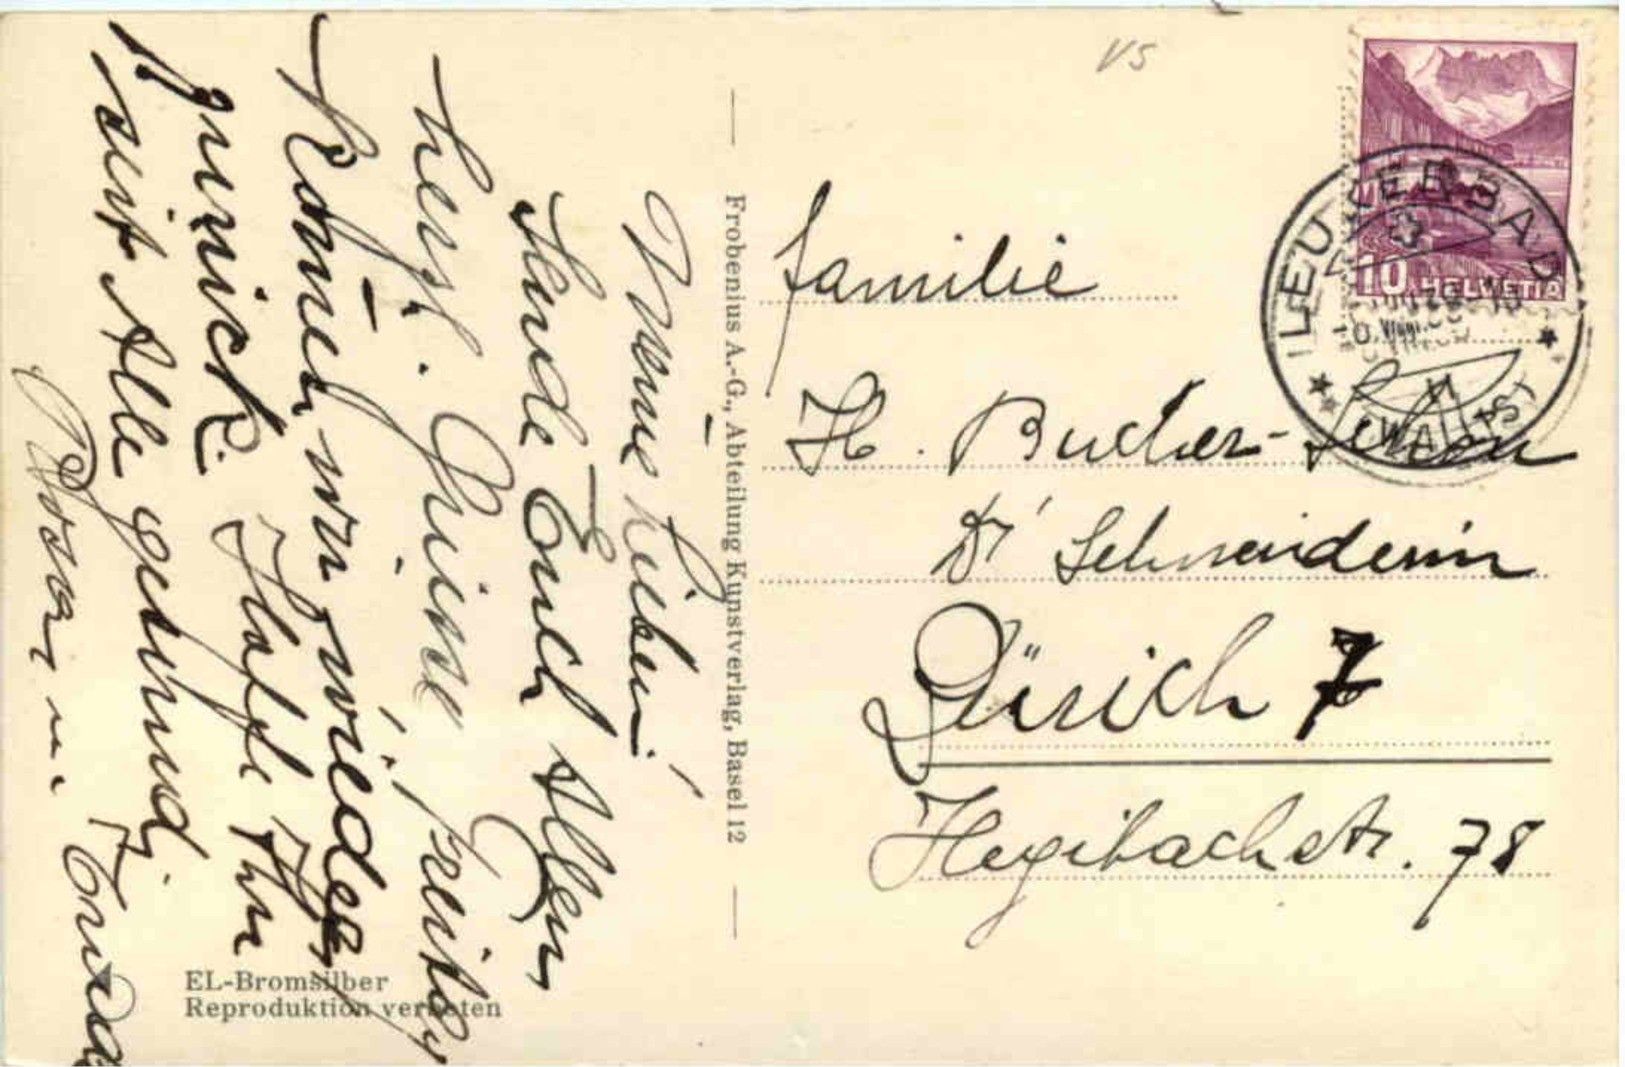 Meine Lieben!
Sende Euch Allen
herzl. Grüsse, freitag
kommen wir wieder
zurück. Hoffe Ihr
seit Alle gesund,
Rosa u. Truda
Frobenius A.-G., Abteilung Kunstverlag, Basel 12
EL-Bromsilber
Reproduktion verboten
VS
10 HELVETIA
LEUKERBAD
(WALLIS)
Familie
H. Bucher-
Dr Schneiderin
Zürich 7
Hegibachstr. 78